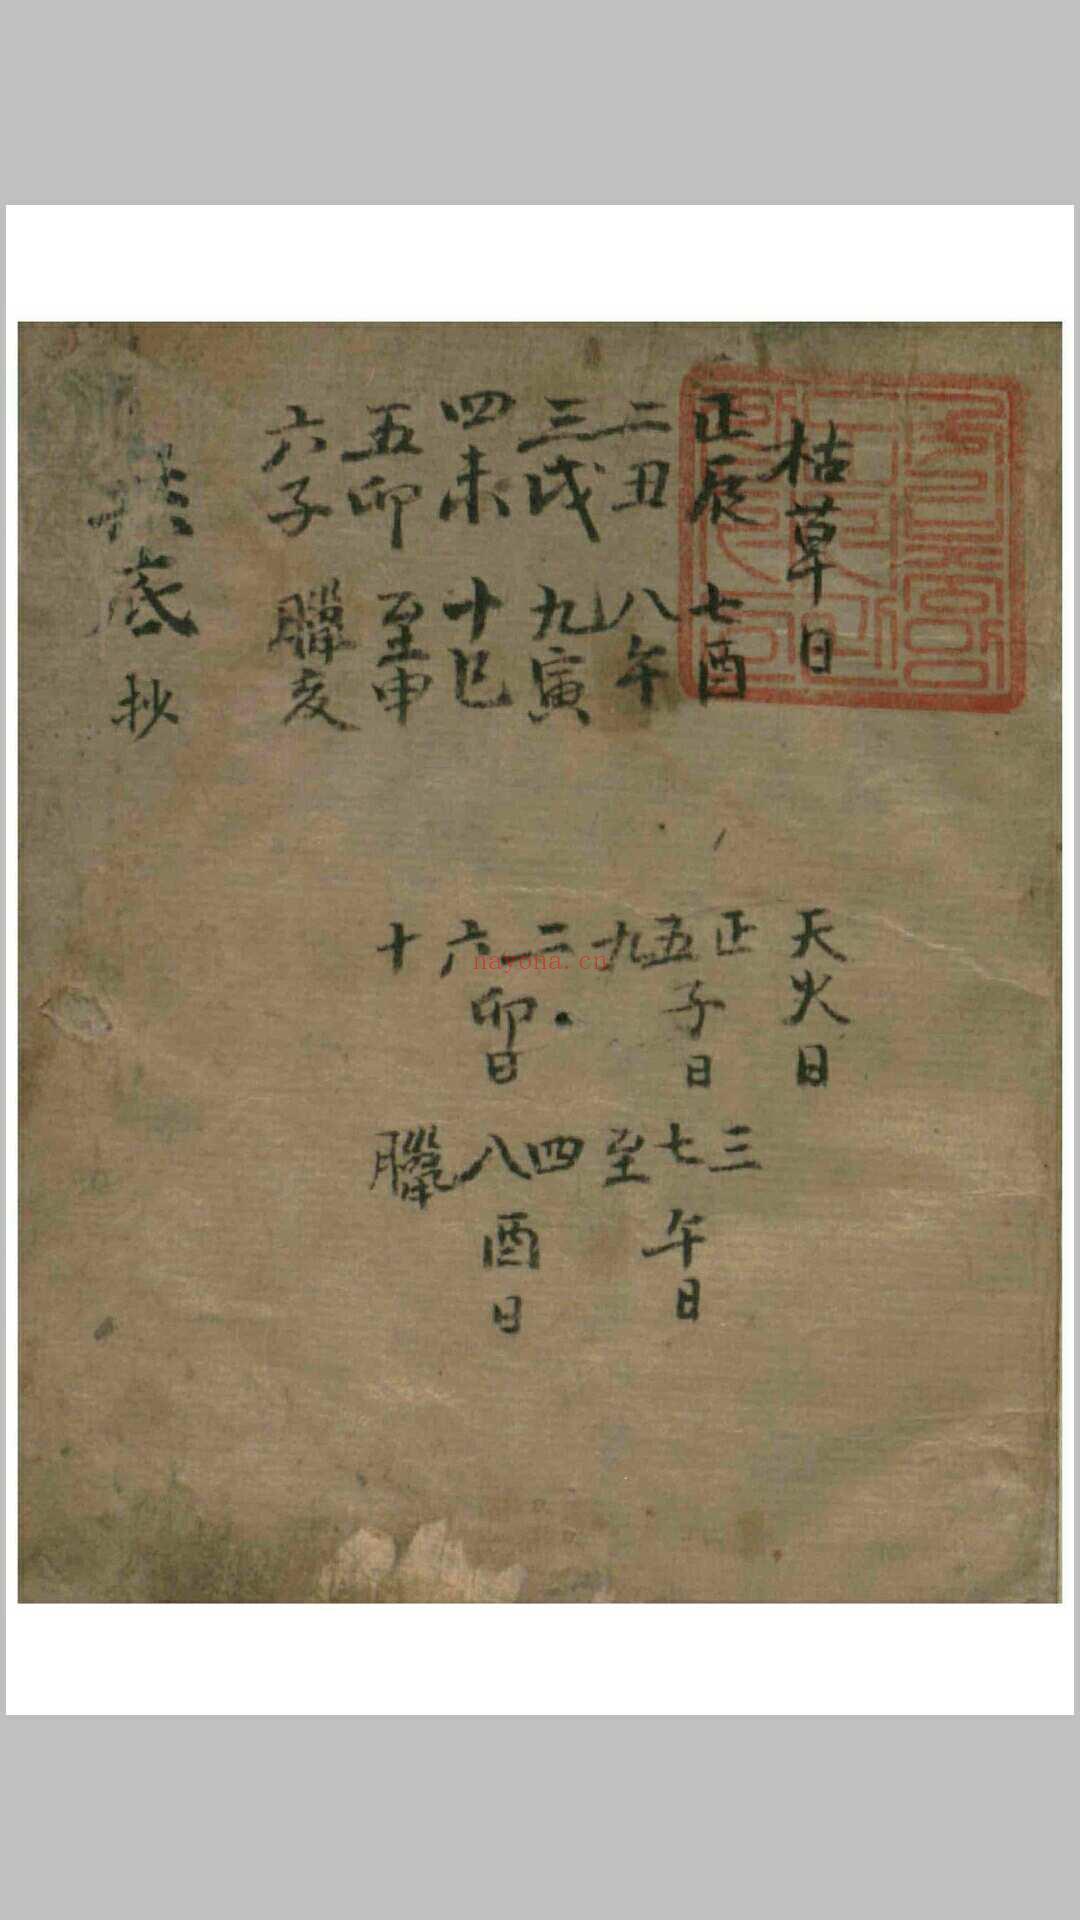 枯草日
正辰 七酉
二丑 八午
三戌 九寅
四未 十巳
五卯 至申
六子 臘亥
底抄
天火日
正五九 子日
二六十 卯日
三七至 午日
四八臘 酉日
nayona.cn